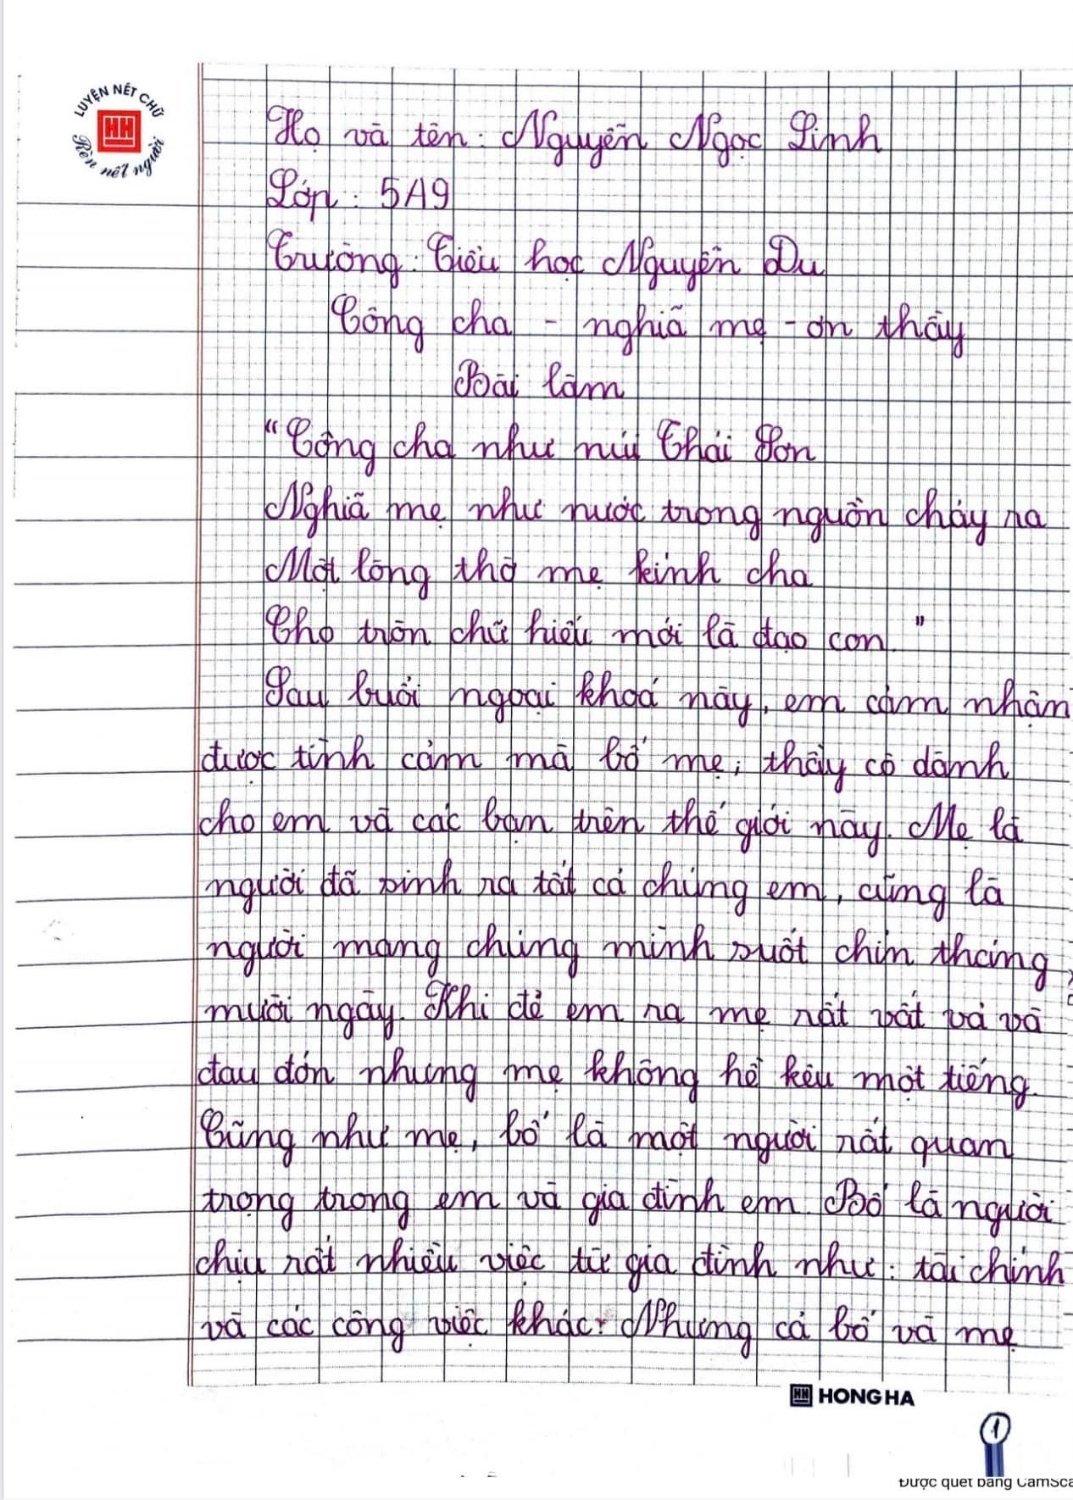 LUYỆN NÉT CHỮ
HH
Rèn nết người
Họ và tên: Nguyễn Ngọc Linh
Lớp: 5A9
Trường: Tiểu học Nguyễn Du
Công cha - nghiã mẹ - ơn thầy
Bài làm
"Công cha như núi Thái Sơn
Nghiã mẹ như nước trong nguồn chảy ra
Một lòng thờ mẹ kính cha
Cho tròn chữ hiếu mới là đạo con."
Sau buổi ngoại khoá này, em cảm nhận
được tình cảm mà bố mẹ, thầy cô dành
cho em và các bạn trên thế giới này. Mẹ là
người đã sinh ra tất cả chúng em, cũng là
người mang chúng mình suốt chín tháng
mười ngày. Khi đẻ em ra mẹ rất vất vả và
đau đớn nhưng mẹ không hề kêu một tiếng.
Cũng như mẹ, bố là một người rất quan
trọng trong em và gia đình em. Bố là người
chịu rất nhiều việc từ gia đình như: tài chính
và các công việc khác. Nhưng cả bố và mẹ
HH HONG HA
1
Được quét bằng CamSca